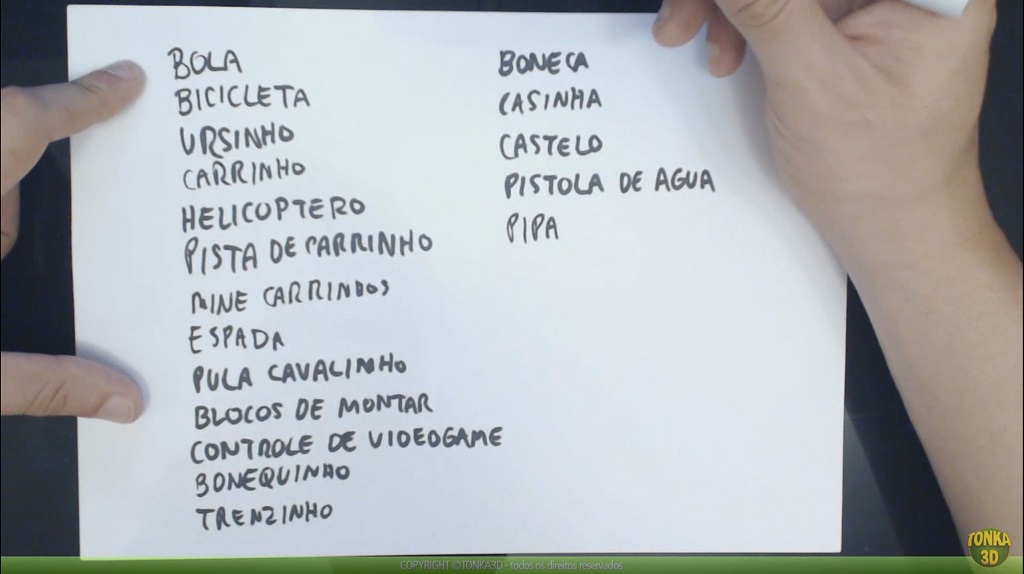 BOLA
BICICLETA
URSINHO
CARRINHO
HELICOPTERO
PISTA DE CARRINHO
MINE CARRINHOS
ESPADA
PULA CAVALINHO
BLOCOS DE MONTAR
CONTROLE DE VIDEOGAME
BONEQUINHO
TRENZINHO
BONECA
CASINHA
CASTELO
PISTOLA DE AGUA
PIPA
TONKA
3D
COPYRIGHT © TONKA3D - todos os direitos reservados